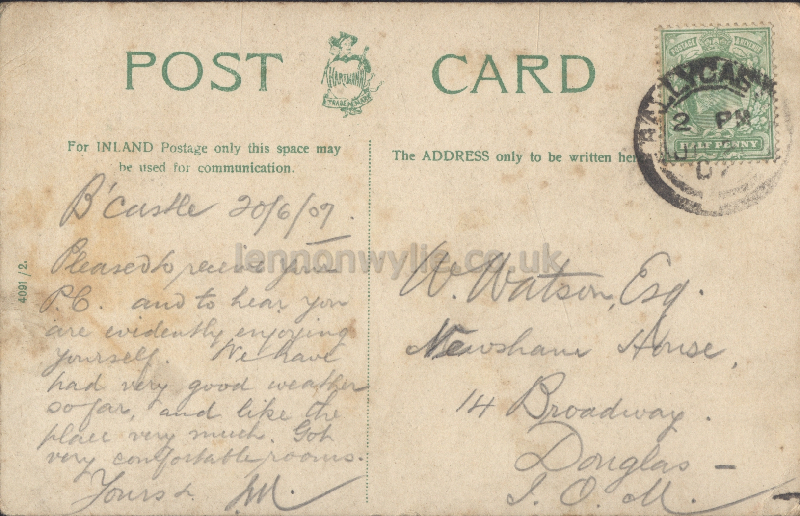 POST CARD
HARTMANN
TRADE MARK
POSTAGE & REVENUE
HALF PENNY
BALLYCAS
2 PM
07
For INLAND Postage only this space may
be used for communication.
The ADDRESS only to be written here
4091/2.
B'castle 20/6/07.
Pleased to receive your
P.C. and to hear you
are evidently enjoying
yourself. We have
had very good weather
so far, and like the
place very much. Got
very comfortable rooms.
Yours &
lennonwylie.co.uk
W. Watson, Esq.
Newsham House,
14 Broadway.
Douglas –
I. O. M. –